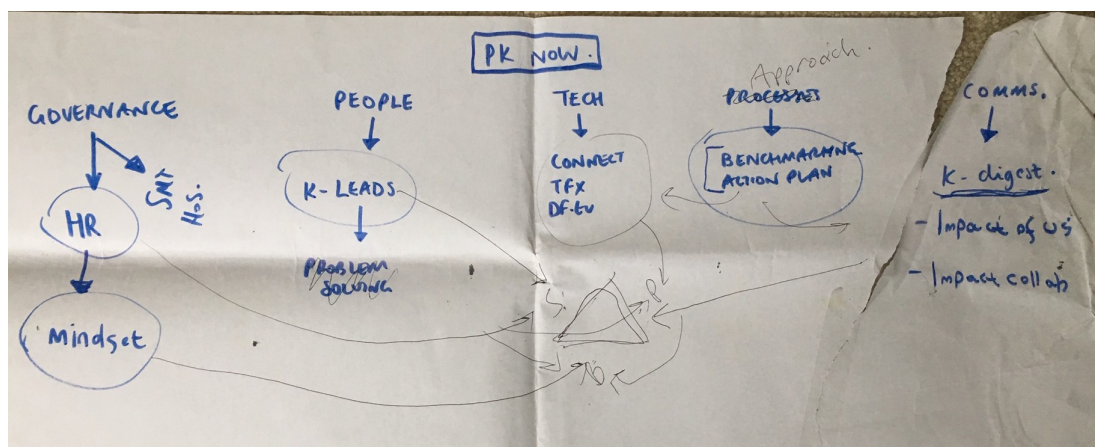 PK NOW.
GOVERNANCE
SMT
HoS.
HR
Mindset
PEOPLE
K-LEADS
PROBLEM
SOLVING
TECH
CONNECT
TFX
Approach.
PROCESSES
BENCHMARKING
ACTION PLAN
COMMS.
K-digest.
- Impact of WS
- Impact collab
S
P